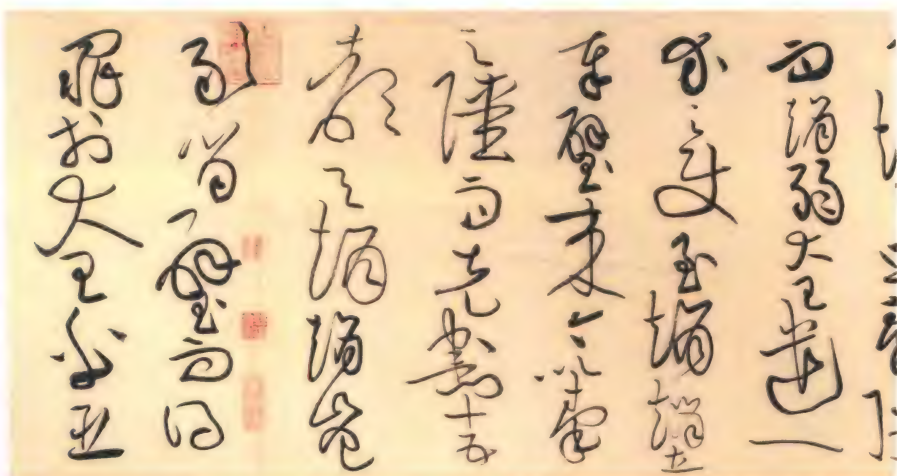 而趙弱大王遣一
介之使至趙趙立
奉璧來今以秦
之彊而先割十五
都予趙趙豈
敢留璧而得
罪於大王乎臣